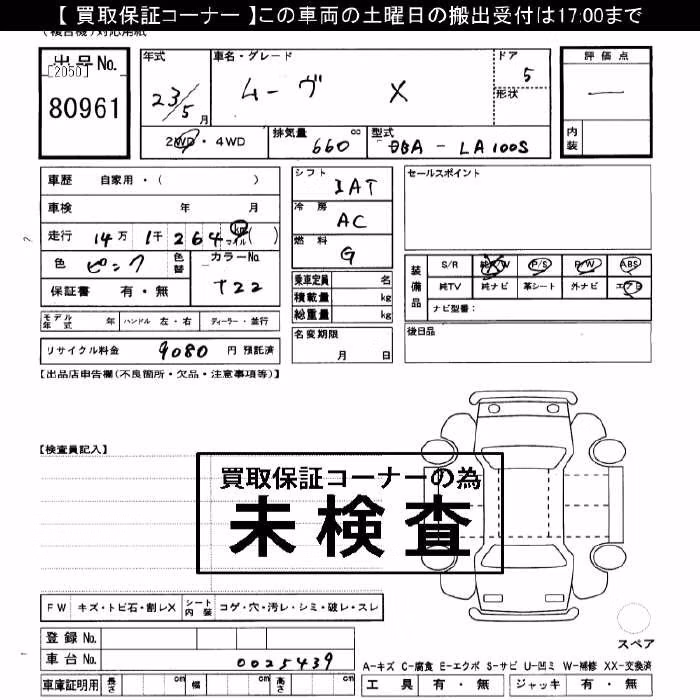 【 買取保証コーナー 】この車両の土曜日の搬出受付は17:00まで
(複合機)対応用紙
出品No.
[2050]
80961
年式
23/5月
車名・グレード
ムーヴ X
ドア
5
形状
評価点
—
内装
2WD・4WD
排気量
660
cc
型式
DBA - LA100S
車歴 自家用・( )
車検 年 月
走行 14万 1千 264 km マイル( )
色 ピンク
色替
カラーNo.
T22
保証書 有・無
シフト
IAT
冷房
AC
燃料
G
乗車定員 名
積載量 kg
総重量 kg
セールスポイント
装備品
S/R 純A/W P/S P/W ABS
純TV 純ナビ 革シート 外ナビ エアB
ナビ型番:
モデル年式 年 ハンドル 左・右 ディーラー・並行
リサイクル料金 9080 円 預託済
名変期限
月 日
後日品
【出品店申告欄(不良箇所・欠品・注意事項等)】
【検査員記入】
買取保証コーナーの為
未検査
FW キズ・トビ石・割レX
シート内装 コゲ・穴・汚レ・シミ・破レ・スレ
登録No.
車台No. 0025439
車庫証明用 長さ cm 幅 cm 高さ cm
スペア
A-キズ C-腐食 E-エクボ S-サビ U-凹ミ W-補修 XX-交換済
工具 有・無 ジャッキ 有・無